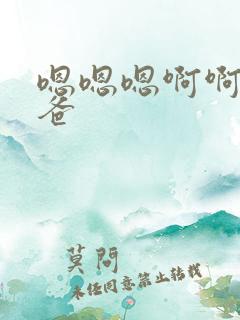 嗯嗯嗯啊啊
爸
莫问
未经同意禁止转载